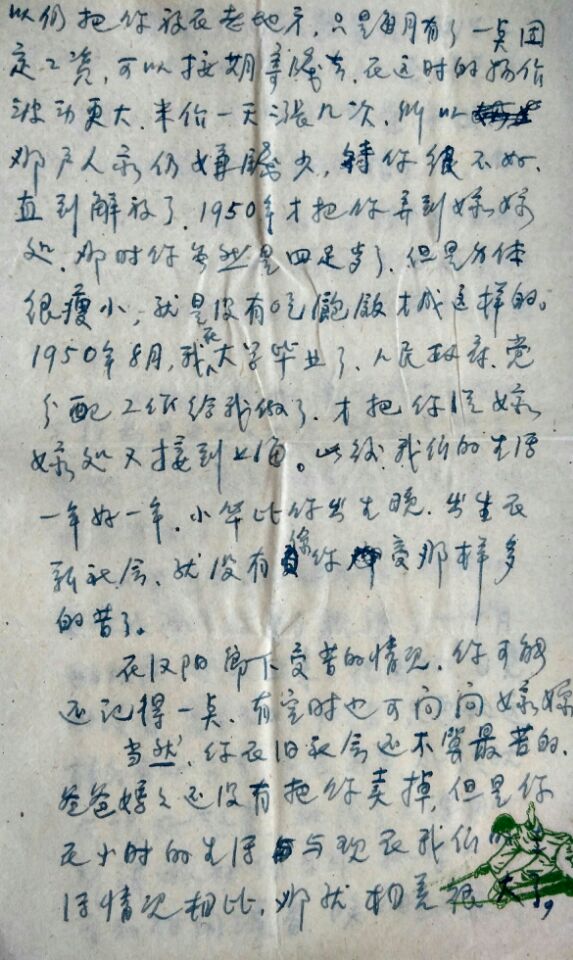 以仍把你放在老地方，只是每月有了一点固
定工资，可以按期寄钱去，在这时的物价
波动更大，米价一天涨几次，所以
那户人家仍嫌钱少，待你很不好，
直到解放了，1950年才把你弄到嫁嫁
处，那时你虽然是四足岁了，但是身体
很瘦小，就是没有吃饱饭才成这样的。
1950年8月，我在大学毕业了，人民政府、党
分配工作给我做了，才把你从嫁
嫁处又接到上海。以后我们的生活
一年好一年，小华比你出生晚，出生在
新社会，就没有像你受那样多
的苦了。
在汉阳乡下受苦的情况，你可能
还记得一点，有空时也可问问嫁嫁
当然，你在旧社会还不算最苦的，
爸爸妈妈还没有把你卖掉，但是你
在小时的生活与现在我们的生
活情况相比，那就相差很大了，